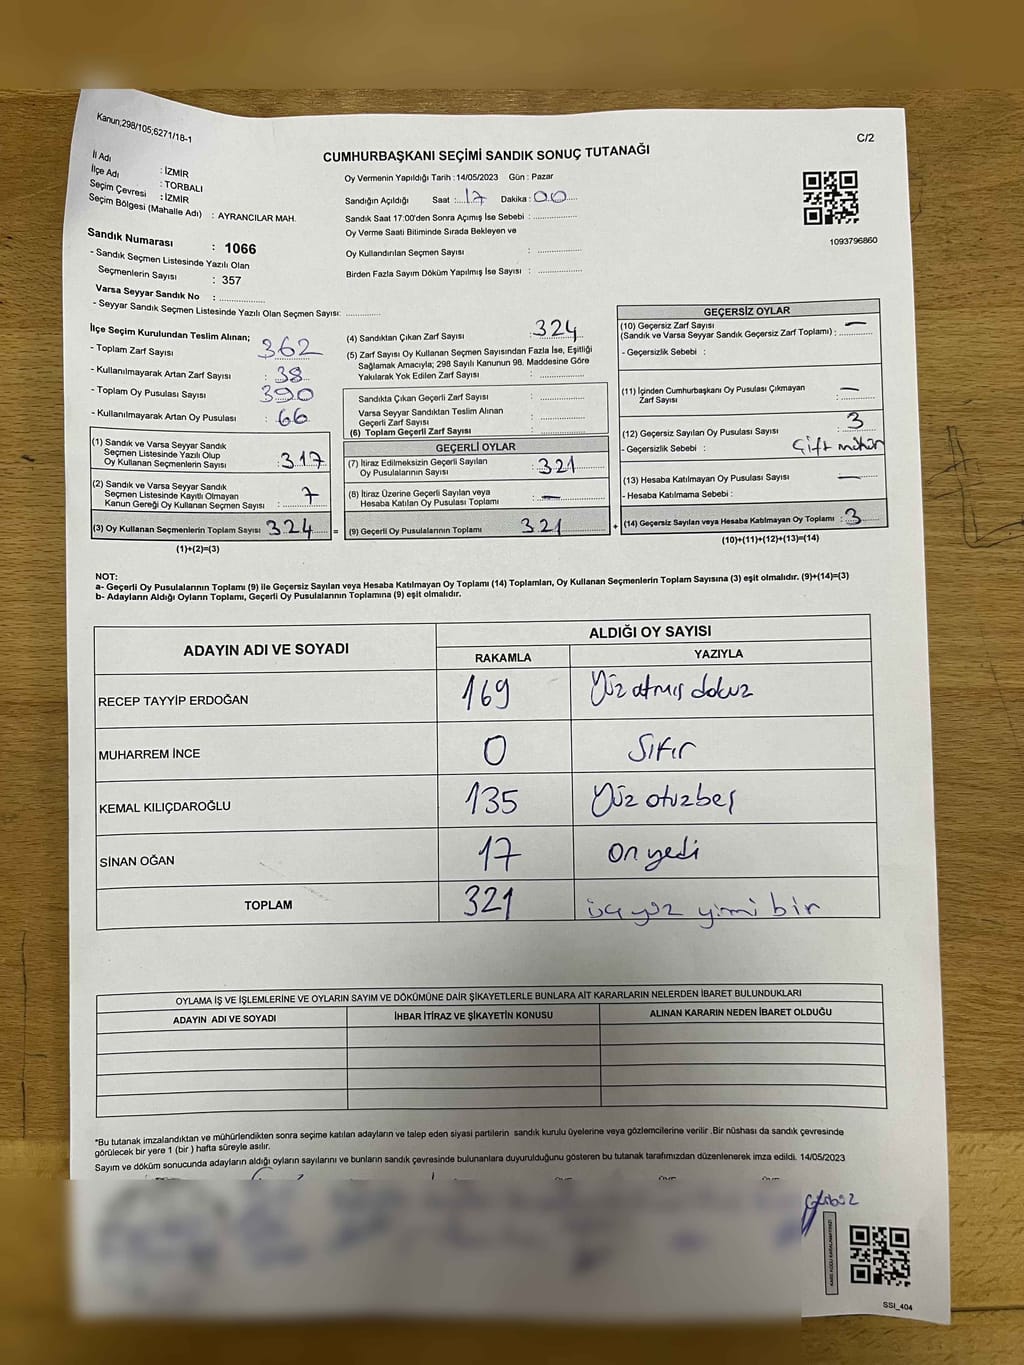 Kanun,298/105;6271/18-1
C/2
CUMHURBAŞKANI SEÇİMİ SANDIK SONUÇ TUTANAĞI
İl Adı : İZMİR
İlçe Adı : TORBALI
Seçim Çevresi : İZMİR
Seçim Bölgesi (Mahalle Adı) : AYRANCILAR MAH.
Sandık Numarası : 1066
- Sandık Seçmen Listesinde Yazılı Olan
Seçmenlerin Sayısı : 357
Varsa Seyyar Sandık No : ....................
- Seyyar Sandık Seçmen Listesinde Yazılı Olan Seçmen Sayısı: ............
Oy Vermenin Yapıldığı Tarih : 14/05/2023 Gün : Pazar
Sandığın Açıldığı Saat : 17 Dakika : 00
Sandık Saat 17:00'den Sonra Açımış İse Sebebi : ..............
Oy Verme Saati Bitiminde Sırada Bekleyen ve
Oy Kullandırılan Seçmen Sayısı : ..............
Birden Fazla Sayım Döküm Yapılmış İse Sayısı : ..............
1093796860
İlçe Seçim Kurulundan Teslim Alınan;
- Toplam Zarf Sayısı : 362
- Kullanılmayarak Artan Zarf Sayısı : 38
- Toplam Oy Pusulası Sayısı : 390
- Kullanılmayarak Artan Oy Pusulası : 66
(1) Sandık ve Varsa Seyyar Sandık
Seçmen Listesinde Yazılı Olup
Oy Kullanan Seçmenlerin Sayısı : 317
(2) Sandık ve Varsa Seyyar Sandık
Seçmen Listesinde Kayıtlı Olmayan
Kanun Gereği Oy Kullanan Seçmen Sayısı : 7
(3) Oy Kullanan Seçmenlerin Toplam Sayısı 324 =
(1)+(2)=(3)
(4) Sandıktan Çıkan Zarf Sayısı : 324
(5) Zarf Sayısı Oy Kullanan Seçmen Sayısından Fazla İse, Eşitliği
Sağlamak Amacıyla; 298 Sayılı Kanunun 98. Maddesine Göre
Yakılarak Yok Edilen Zarf Sayısı : ..............
Sandıkta Çıkan Geçerli Zarf Sayısı : ..............
Varsa Seyyar Sandıktan Teslim Alınan
Geçerli Zarf Sayısı : ..............
(6) Toplam Geçerli Zarf Sayısı : ..............
GEÇERLİ OYLAR
(7) İtiraz Edilmeksizin Geçerli Sayılan
Oy Pusulalarının Sayısı : 321
(8) İtiraz Üzerine Geçerli Sayılan veya
Hesaba Katılan Oy Pusulası Toplamı : —
(9) Geçerli Oy Pusulalarının Toplamı 321 +
GEÇERSİZ OYLAR
(10) Geçersiz Zarf Sayısı —
(Sandık ve Varsa Seyyar Sandık Geçersiz Zarf Toplamı) : ........
- Geçersizlik Sebebi :
(11) İçinden Cumhurbaşkanı Oy Pusulası Çıkmayan —
Zarf Sayısı : ........
(12) Geçersiz Sayılan Oy Pusulası Sayısı : 3
- Geçersizlik Sebebi : Çift mühür
(13) Hesaba Katılmayan Oy Pusulası Sayısı : —
- Hesaba Katılmama Sebebi :
(14) Geçersiz Sayılan veya Hesaba Katılmayan Oy Toplamı : 3
(10)+(11)+(12)+(13)=(14)
NOT:
a- Geçerli Oy Pusulalarının Toplamı (9) ile Geçersiz Sayılan veya Hesaba Katılmayan Oy Toplamı (14) Toplamları, Oy Kullanan Seçmenlerin Toplam Sayısına (3) eşit olmalıdır. (9)+(14)=(3)
b- Adayların Aldığı Oyların Toplamı, Geçerli Oy Pusulalarının Toplamına (9) eşit olmalıdır.
ADAYIN ADI VE SOYADI ALDIĞI OY SAYISI
RAKAMLA YAZIYLA
RECEP TAYYİP ERDOĞAN 169 Yüz atmış dokuz
MUHARREM İNCE 0 Sıfır
KEMAL KILIÇDAROĞLU 135 Yüz otuzbeş
SİNAN OĞAN 17 On yedi
TOPLAM 321 üç yüz yimi bir
OYLAMA İŞ VE İŞLEMLERİNE VE OYLARIN SAYIM VE DÖKÜMÜNE DAİR ŞİKAYETLERLE BUNLARA AİT KARARLARIN NELERDEN İBARET BULUNDUKLARI
ADAYIN ADI VE SOYADI İHBAR İTİRAZ VE ŞİKAYETİN KONUSU ALINAN KARARIN NEDEN İBARET OLDUĞU
*Bu tutanak imzalandıktan ve mühürlendikten sonra seçime katılan adayların ve talep eden siyasi partilerin sandık kurulu üyelerine veya gözlemcilerine verilir .Bir nüshası da sandık çevresinde
görülecek bir yere 1 (bir ) hafta süreyle asılır.
Sayım ve döküm sonucunda adayların aldığı oyların sayılarını ve bunların sandık çevresinde bulunanlara duyurulduğunu gösteren bu tutanak tarafımızdan düzenlenerek imza edildi. 14/05/2023
SSI_404